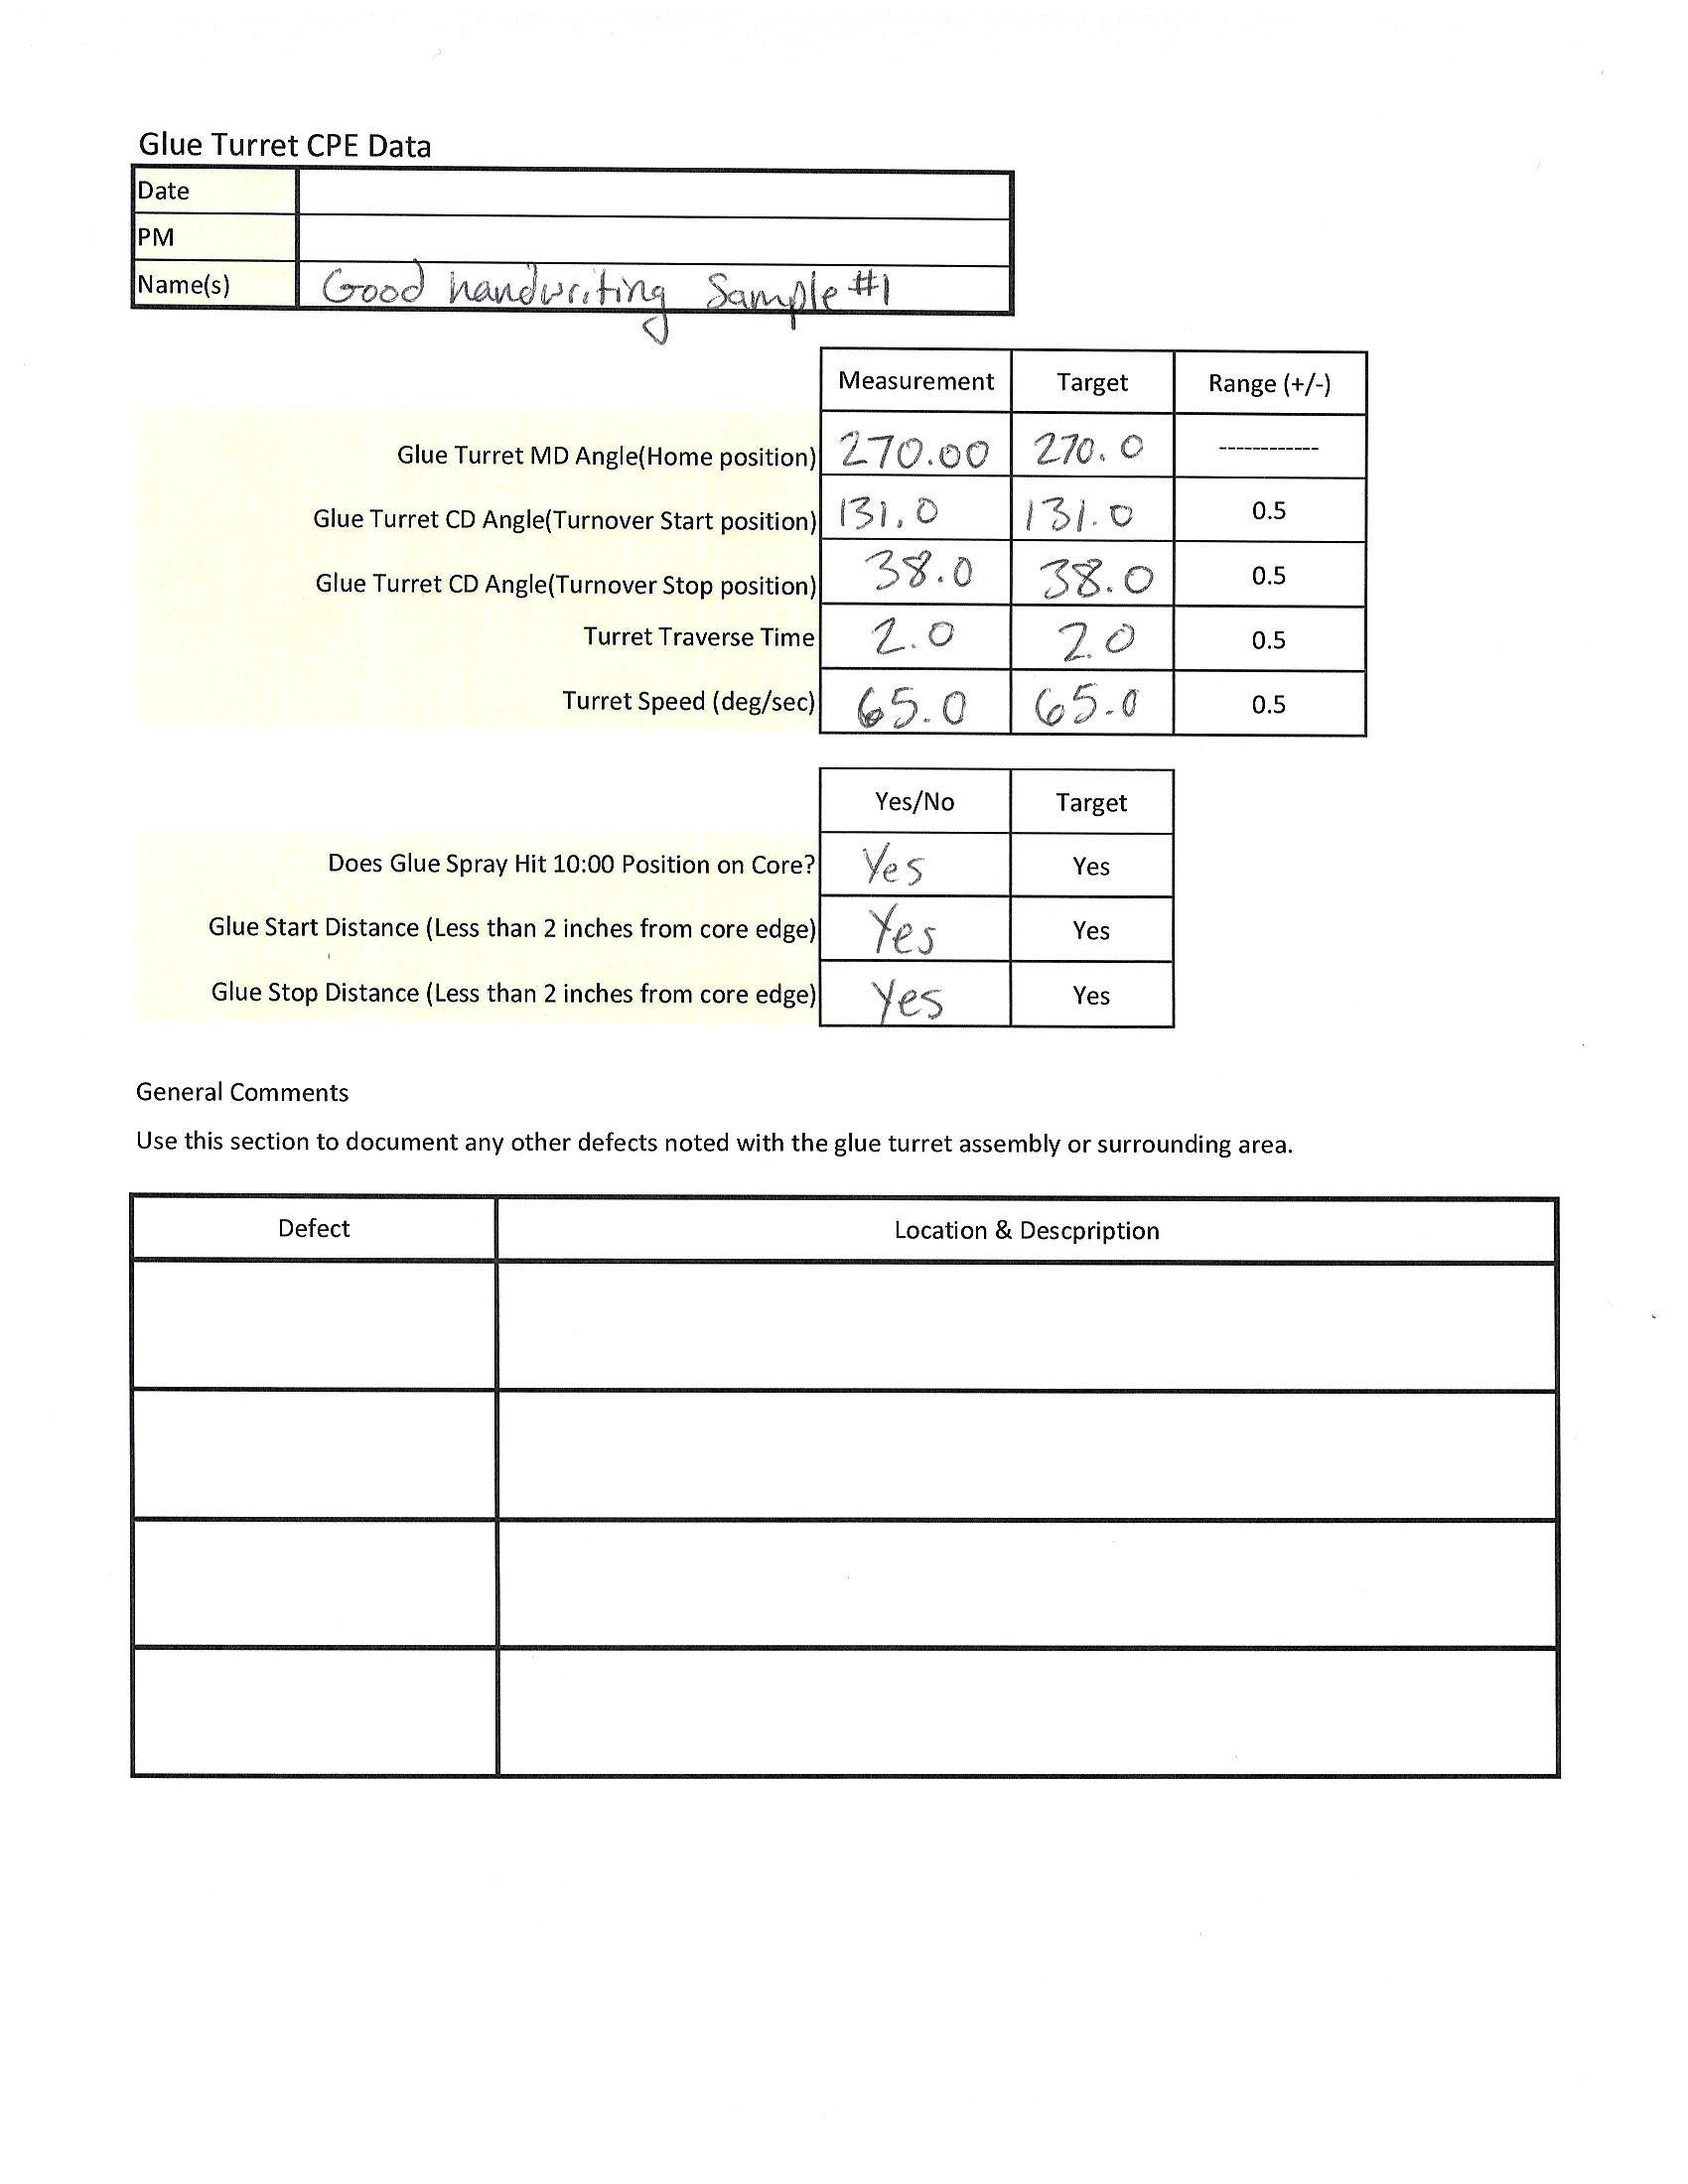 Glue Turret CPE Data
Date
PM
Name(s) Good handwriting Sample #1
Measurement Target Range (+/-)
Glue Turret MD Angle(Home position) 270.00 270.0 ------------
Glue Turret CD Angle(Turnover Start position) 131.0 131.0 0.5
Glue Turret CD Angle(Turnover Stop position) 38.0 38.0 0.5
Turret Traverse Time 2.0 2.0 0.5
Turret Speed (deg/sec) 65.0 65.0 0.5
Yes/No Target
Does Glue Spray Hit 10:00 Position on Core? Yes Yes
Glue Start Distance (Less than 2 inches from core edge) Yes Yes
Glue Stop Distance (Less than 2 inches from core edge) Yes Yes
General Comments
Use this section to document any other defects noted with the glue turret assembly or surrounding area.
Defect Location & Descpription